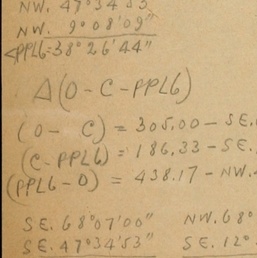 NW. 47°34'53"
NW. 9°08'09"
<PPL6=38°26'44"
Δ(O-C-PPL6)
(O - C) = 305.00 - SE.
(C-PPL6) = 186.33 - SE.
(PPL6-O) = 438.17 - NW.
SE. 68°07'00" NW. 68°
SE. 47°34'53" SE. 12°